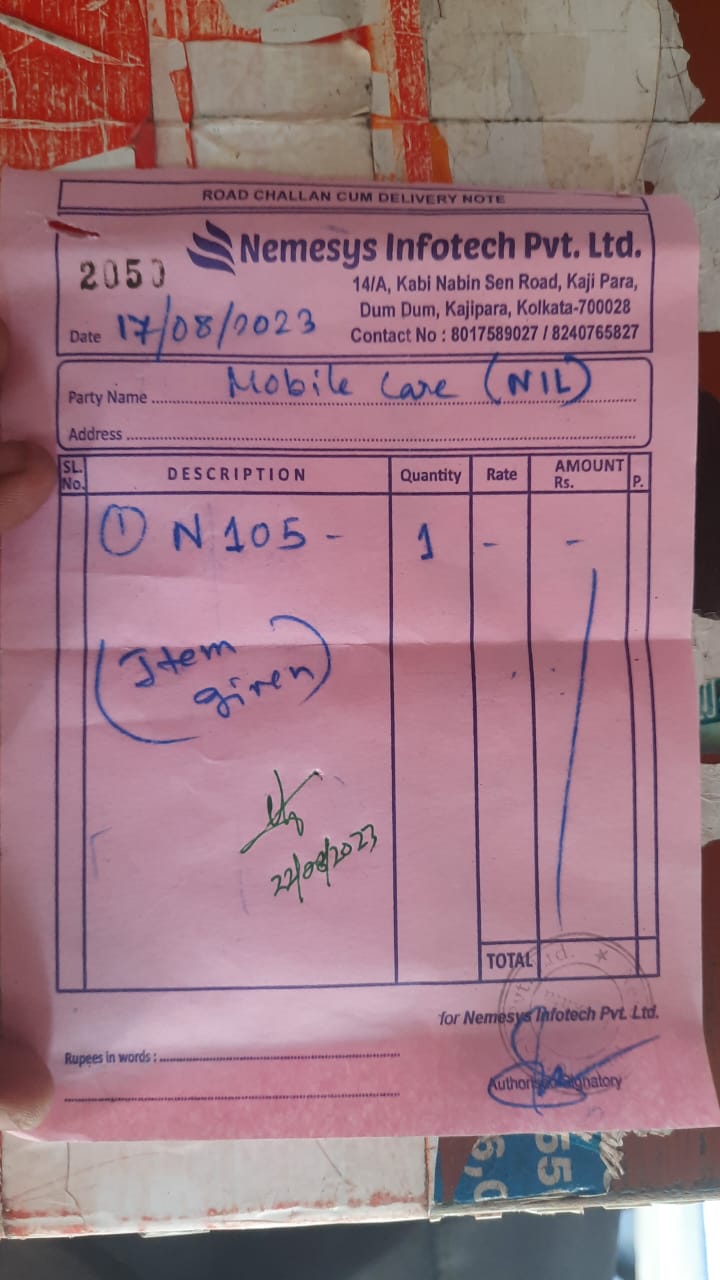 ROAD CHALLAN CUM DELIVERY NOTE
2050
Nemesys Infotech Pvt. Ltd.
14/A, Kabi Nabin Sen Road, Kaji Para,
Dum Dum, Kajipara, Kolkata-700028
Date 17/08/2023
Contact No : 8017589027 / 8240765827
Party Name Mobile Care (NIL)
Address
SL. No. DESCRIPTION Quantity Rate AMOUNT Rs. P.
① N 105 - 1 - -
(Item
given)
22/08/2023
TOTAL
for Nemesys Infotech Pvt. Ltd.
Rupees in words :
Authorised Signatory
55